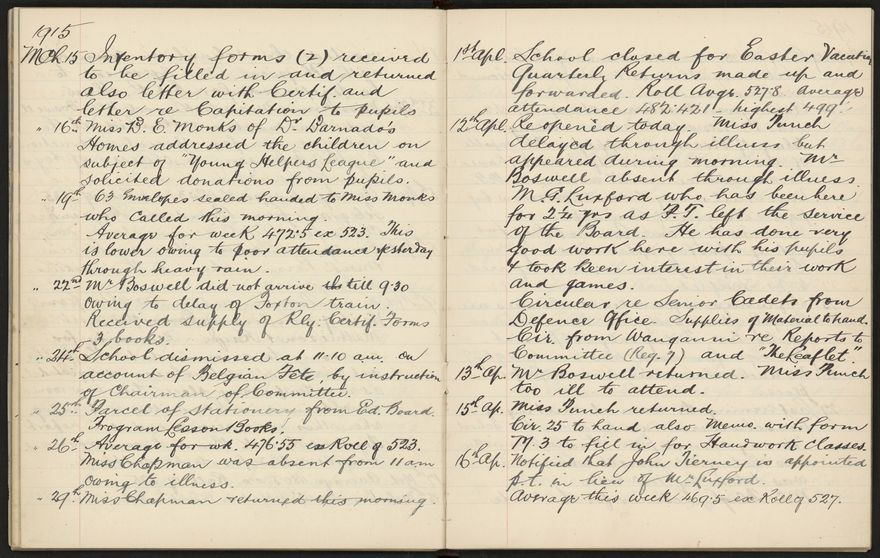 1915
Mch. 15 Inventory forms (2) received
to be filled in and returned
also letter with Certif. and
letter re Capitation to pupils
" 16th Miss D. E. Monks of Dr Barnados
Homes addressed the children on
subject of "Young Helpers League" and
solicited donations from pupils.
" 19th 63 Envelopes sealed handed to Miss Monks
who called this morning.
Average for week 472.5 ex 523. This
is lower owing to poor attendance yesterday
through heavy rain.
" 22nd Mr Boswell did not arrive till 9.30
owing to delay of Foxton train.
Received supply of Rly. Certif. Forms
3 books.
" 24th School dismissed at 11.10 a.m. on
account of Belgian Fete, by instruction
of Chairman of Committee.
" 25th Parcel of stationery from Ed. Board
Program Lesson Books.
" 26th Average for wk. 476.55 ex Roll of 523.
Miss Chapman was absent from 11 am
owing to illness.
" 29th Miss Chapman returned this morning.
1st Apl. School closed for Easter Vacation
Quarterly Returns made up and
forwarded. Roll Avge. 527.8 average
attendance 482.421 - highest 499.
12th Apl. Reopened today. Miss Punch
delayed through illness but
appeared during morning. Mr
Boswell absent through illness.
M. G. Luxford who has been here
for 2¼ yrs as P.T. left the service
of the Board. He has done very
good work here with his pupils
& took keen interest in their work
and games.
Circular re Senior Cadets from
Defence Office. Supplies of Material to hand.
Cir. from Wanganui re Reports to
Committee (Reg. 7) and "The Leaflet."
13th Ap. Mr Boswell returned. Miss Punch
too ill to attend.
15th Ap. Miss Punch returned.
Cir. 25 to hand also Memo. with form
M. 3 to fill in for Handwork Classes.
16th Ap. Notified that John Tierney is appointed
P.T. in lieu of Mr Luxford.
Average this week 469.5 ex Roll of 527.